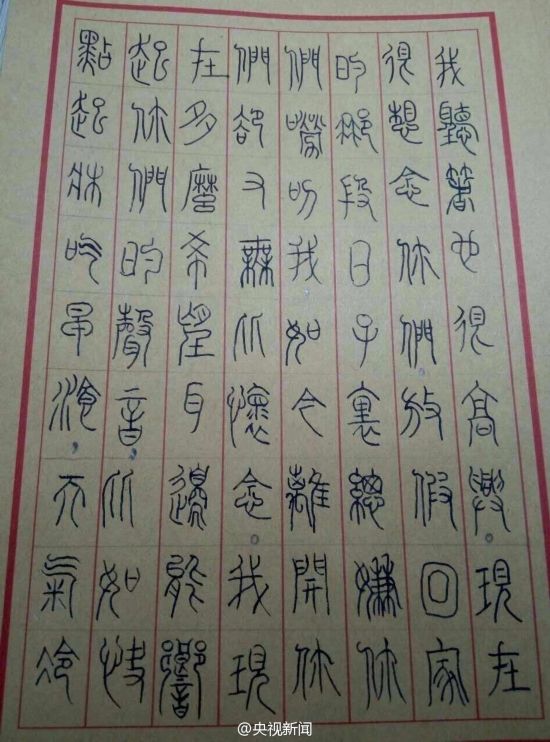 我聽著也很高興。現在
很想念你們,放假回家
的那段日子裏總嫌你
們嘮叨我如今離開你
們卻又無比懷念。我現
在多麼希望耳邊能響
起你們的聲音,比如快
點起牀吃早湌,天氣冷
@央视新闻